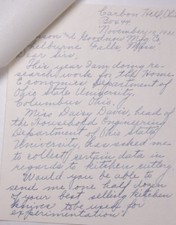 Carbon Hill, Ohio
Box 20
November 12, 19
& Goodnow Mfg. Co
Shelburne Falls, Mass
Dear Sirs,
This year I am doing re-
search work for the Home
Economics department of
Ohio State University,
Columbus Ohio.
Miss Davis, head
of the Household Engineering
Department of Ohio State
University, has asked me
to collect certain data in
regards to kitchen cutlery
Would you be able to
send me one half dozen
of your best selling kitchen
knives to be used for
experimentation